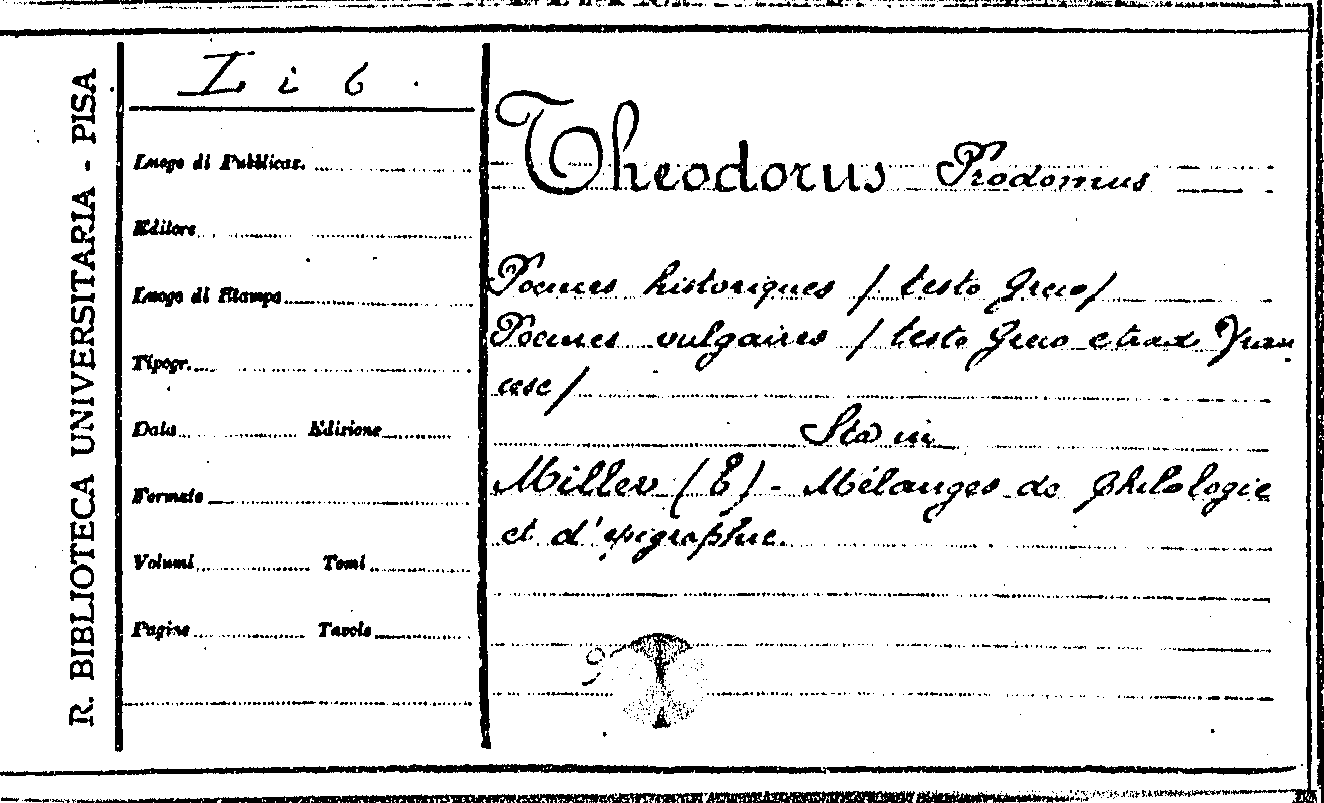 R. BIBLIOTECA UNIVERSITARIA - PISA
Z i 6 .
Luogo di Pubblicaz.
Editore
Luogo di Stampa
Tipogr.
Data Edizione
Formato
Volumi Tomi
Pagine Tavole
Theodorus Prodomus
Poemes historiques / testo greco /
Poemes vulgaires / testo greco e trad. Fran
cese /
Sta in
Miller (E) - Mélanges de philologie
et d'epigraphie.